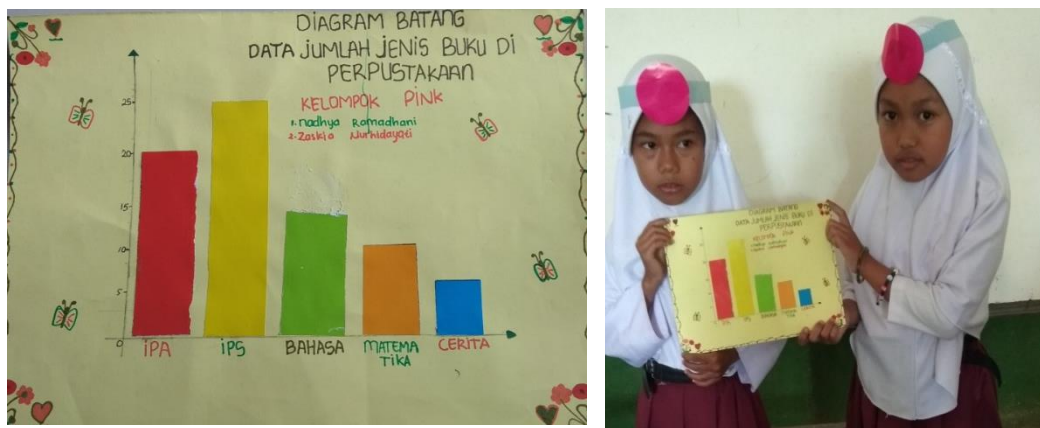 DIAGRAM BATANG
DATA JUMLAH JENIS BUKU DI
PERPUSTAKAAN
KELOMPOK PINK
1. nadhya Romadhani
2. Zaskia Nurhidayati
25
20
15
10
5
0
IPA
IPS
BAHASA
MATEMA
TIKA
CERITA
DIAGRAM BATANG
DATA JUMLAH JENIS BUKU DI
PERPUSTAKAAN
KELOMPOK PINK